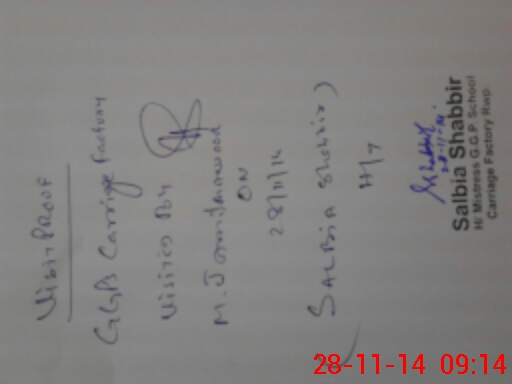 Visit Proof
GGPS Carriage Factory
Visited By
M.
ON
28/11/14
SALBIA Shabbir)
H/T
28-11-14.
Salbia Shabbir
H/ Mistress G.G.P. School
Carriage Factory Rwp.
28-11-14 09:14